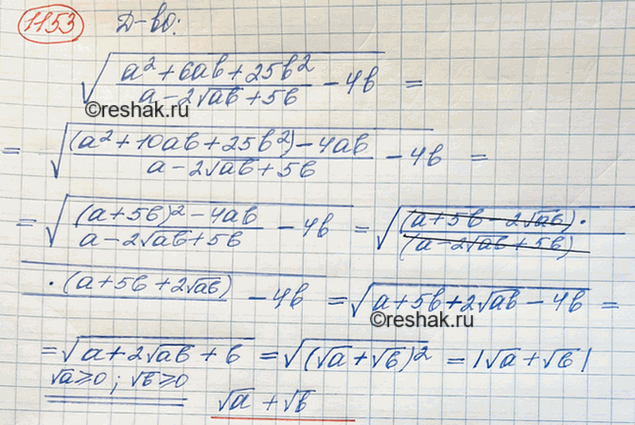 1153 Д-во:
√((a² + 6ab + 25b²)/(a - 2√ab + 5b) - 4b) =
©reshak.ru
= √(((a² + 10ab + 25b²) - 4ab)/(a - 2√ab + 5b) - 4b) =
= √(((a + 5b)² - 4ab)/(a - 2√ab + 5b) - 4b) = √((a + 5b - 2√ab) ·/(a - 2√ab + 5b)
©reshak.ru
· (a + 5b + 2√ab) - 4b) = √(a + 5b + 2√ab - 4b) =
= √(a + 2√ab + b) = √((√a + √b)²) = |√a + √b|
√a ≥ 0 ; √b ≥ 0
√a + √b